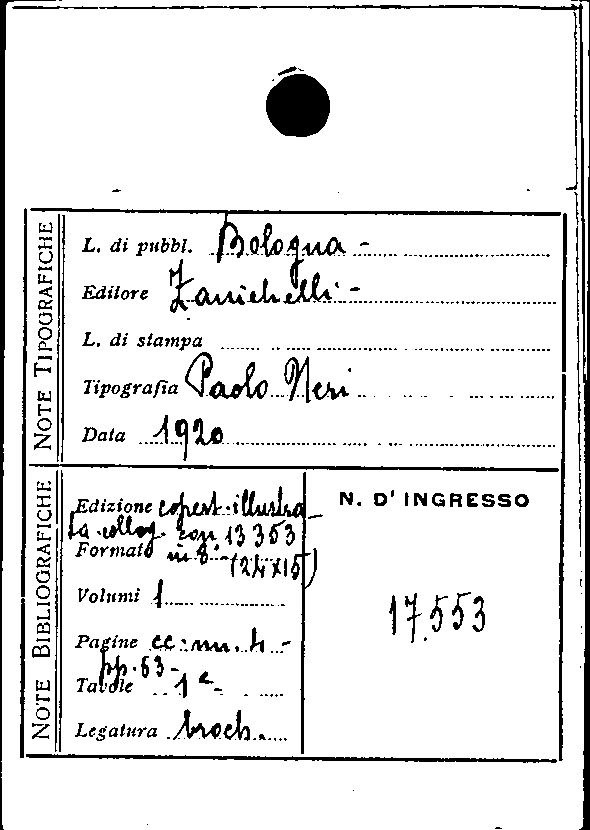 NOTE TIPOGRAFICHE
L. di pubbl. Bologna -
Editore Zanichelli -
L. di stampa
Tipografia Paolo Neri
Data 1920
NOTE BIBLIOGRAFICHE
Edizione copert. illustra-
ta. colloc. con 13353
Formato in 8° (24x15)
Volumi 1
Pagine cc. nn. 4 -
pp. 63 -
Tavole 1
Legatura broch.
N. D' INGRESSO
17.553